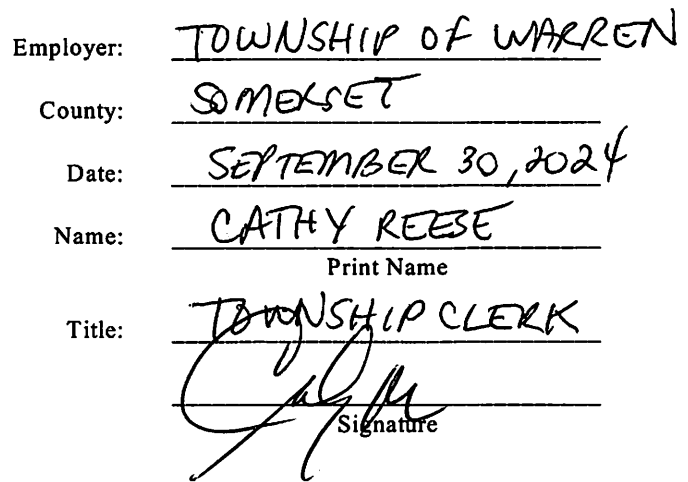 Employer: TOWNSHIP OF WARREN
County: SOMERSET
Date: SEPTEMBER 30, 2024
Name: CATHY REESE
Print Name
Title: TOWNSHIP CLERK
Signature